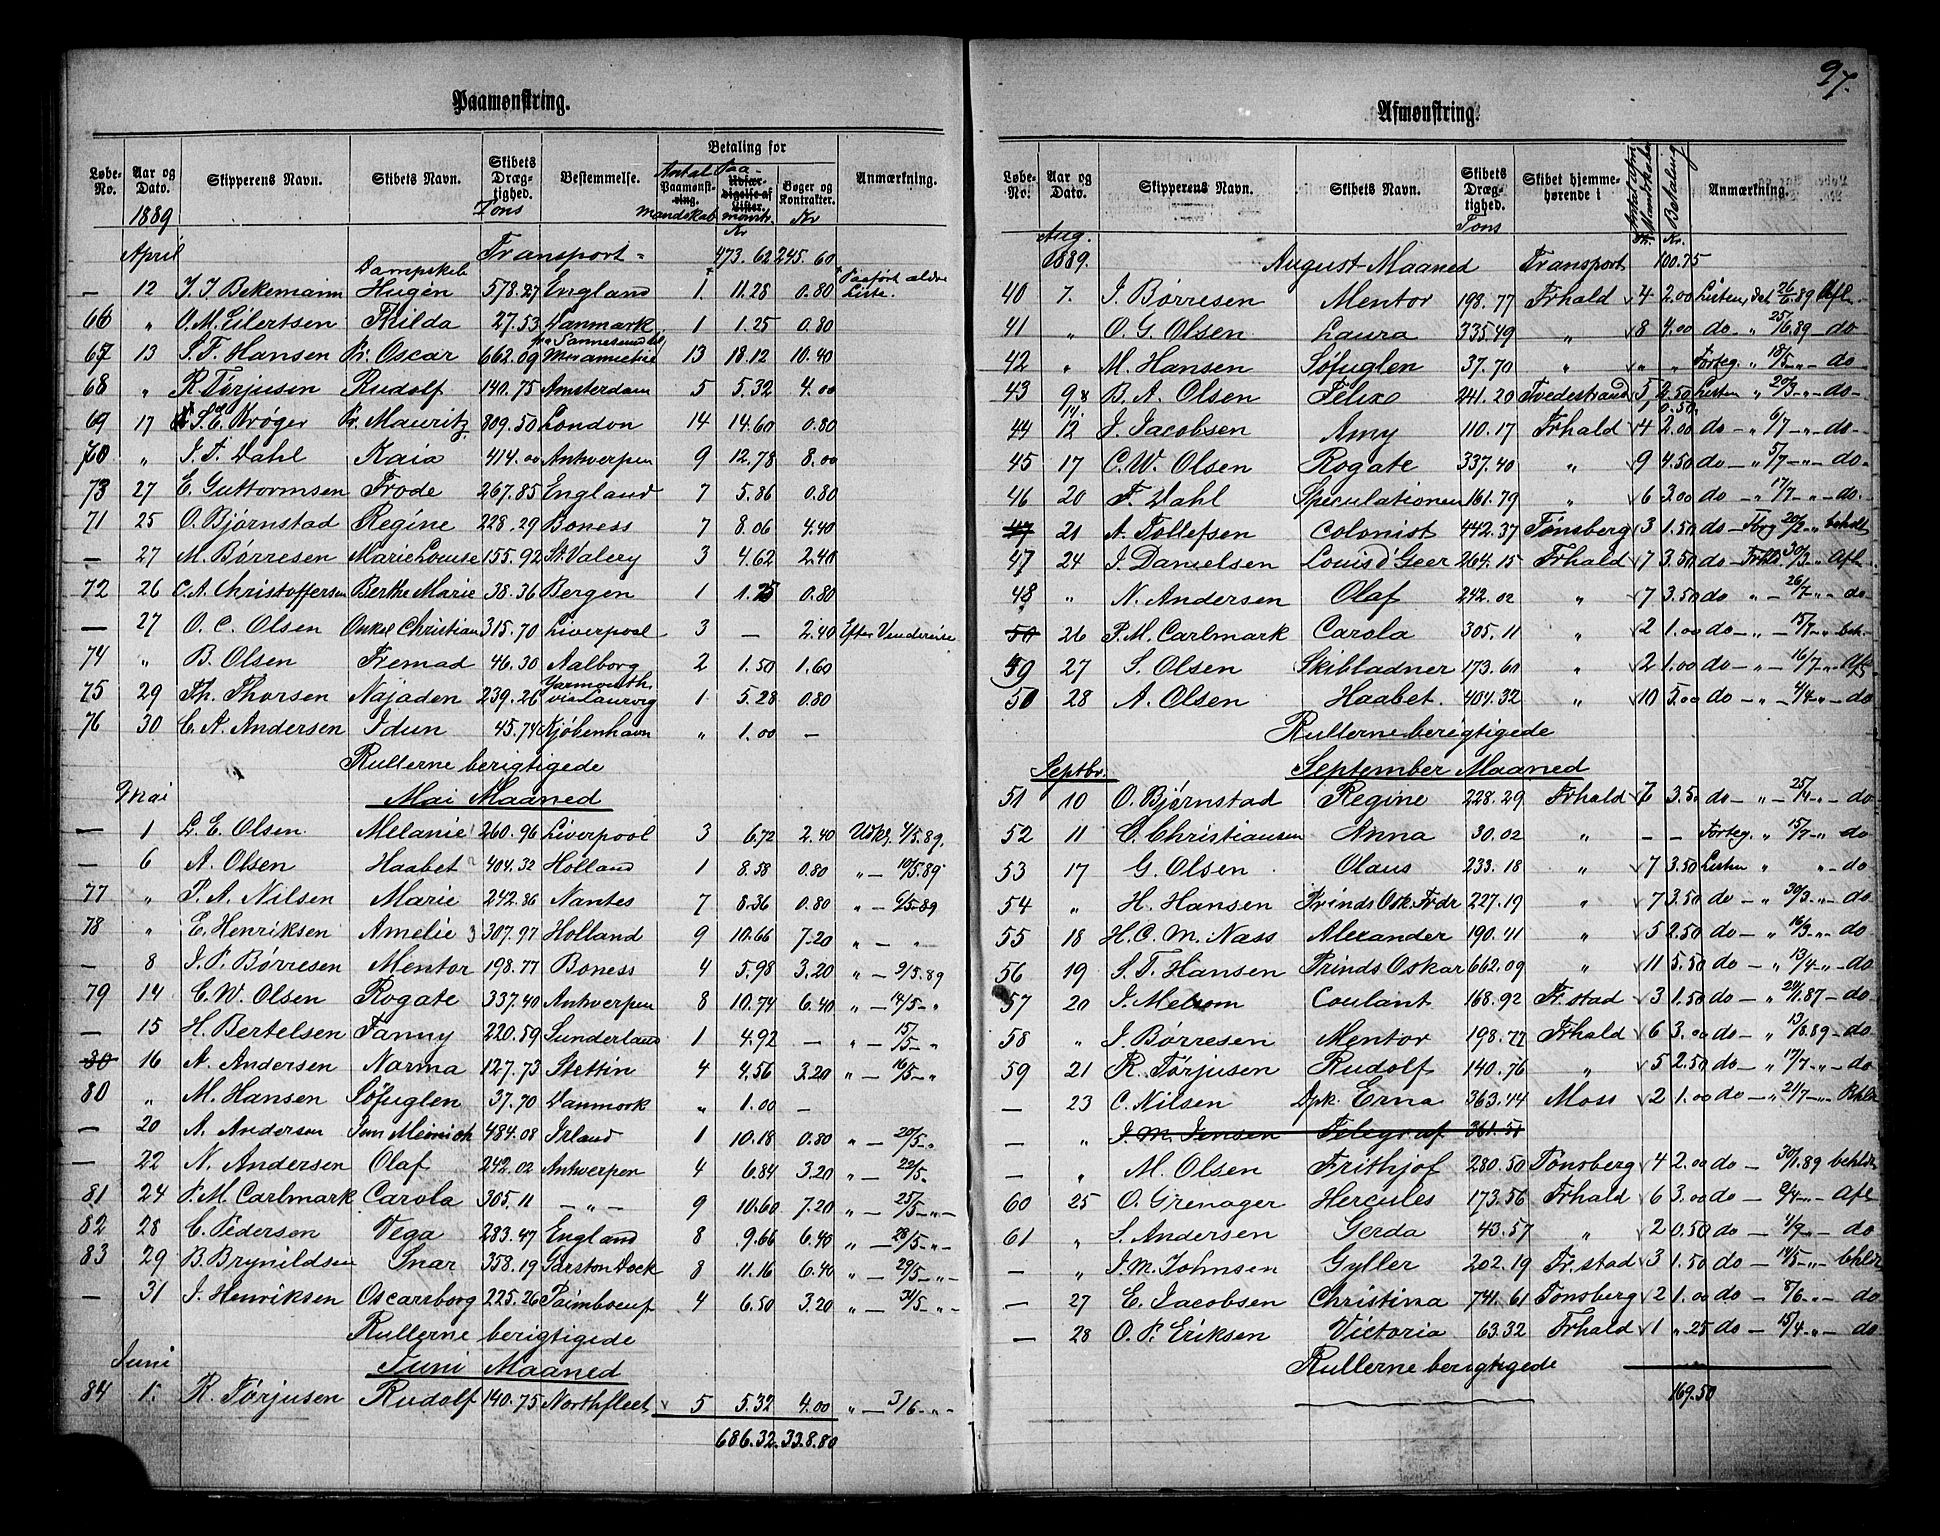 Paamønstring.
Løbe-No. Aar og Dato. Skipperens Navn. Skibets Navn. Skibets Dræg-tighed. Bestemmelse. Betaling for Anmærkning.
Antal Paamønst-ring. Mandskab Paa- Udfær-digelse af Lister. mønstr. Kr Bøger og Kontrakter. Kr
1889 Tons
April Transport 473.62 245.60
— 12 J. J. Bekemann Dampskib Hugin 578.27 England 1 11.28 0.80 Paaført ældre Liste.
66 " O. M. Eilertsen Thilda 27.53 Danmark 1 1.25 0.80
67 13 S. T. Hansen Pr. Oscar 662.09 Miramichie 13 18.12 10.40
68 " R. Tørjusen Rudolf 140.75 Amsterdam 5 5.32 4.00
69 17 S. E. Krøger Pr. Mauritz 809.50 London 14 14.60 0.80
70 " J. F. Dahl Kaia 414.00 Antwerpen 9 12.78 8.00
73 27 E. Guttormsen Frode 267.85 England 7 5.86 0.80
71 25 O. Bjørnstad Regine 228.29 Boness 7 8.06 4.40
— 27 M. Børresen Marie Louise 155.92 St. Valery 3 4.62 2.40
72 26 C. A. Christoffersen Berthe Marie 38.36 Bergen 1 1.25 0.80
— 27 O. C. Olsen Onkel Christian 315.70 Liverpool 3 — 2.40 Efter Vendereise
74 " B. Olsen Fremad 46.30 Aalborg 2 1.50 1.60
75 29 Th. Thorsen Najaden 239.26 Yarmouth via Laurvig 1 5.28 0.80
76 30 C. A. Andersen Idun 45.74 Kjøbenhavn " 1.00 —
Rullerne berigtigede
Mai Mai Maaned
— 1 L. E. Olsen Melanie 260.96 Liverpool 3 6.72 2.40 Udkl. 4/5.89.
— 6 A. Olsen Haabet 404.32 Holland 1 8.58 0.80 " — 10/5.89
77 " P. A. Nilsen Marie 242.86 Nantes 7 8.36 0.80 " — 6/5-89
78 " E. Henriksen Amelie 307.97 Holland 9 10.66 7.20 " — "
— 8 J. P. Børresen Mentor 198.77 Boness 4 5.98 3.20 " — 9/5.89
79 14 C. W. Olsen Rogate 337.40 Antwerpen 8 10.74 6.40 " — 14/5 - "
— 15 H. Bertelsen Fanny 220.59 Sunderland 1 4.92 — " — 15/5 - "
80 16 A. Andersen Norma 127.73 Stettin 4 4.56 3.20 " — 16/5 - "
80 " M. Hansen Søfuglen 37.70 Danmark " 1.00 —
— 20 A. Andersen 484.08 Irland 1 10.18 0.80 " — 20/5 - "
— 22 N. Andersen Olaf 242.02 Antwerpen 4 6.84 3.20 " — 22/5 -
81 24 P. M. Carlmark Carola 305.11 — " — 9 10.60 7.20 " — 25/5 - " -
82 28 C. Pedersen Vega 283.47 England 8 9.66 6.40 " — 28/5 - " -
83 29 B. Brynildsen Snar 358.19 Garston Dock 8 11.16 6.40 " — 29/5 - " -
— 31 J. Henriksen Oscarsborg 225.26 Paimboeuf 4 6.50 3.20 " — 31/5 - " -
Rullerne berigtigede
Juni Juni Maaned
84 1. R. Tørjusen Rudolf 140.75 Northfleet 5 5.32 4.00 " — 3/6 - " -
686.32 338.80
97.
Afmønstring.
Løbe-No. Aar og Dato. Skipperens Navn. Skibets Navn. Skibets Dræg-tighed. Skibet hjemme-hørende i Antal afm. Mandskaber Betaling Kr. Anmærkning.
Tons
Aug. 1889. August Maaned Transport 100.75
40 7. J. Børresen Mentor 198.77 Frhald 4 2.00 Listen, dat 26/6 89 Afl.
41 " O. G. Olsen Laura 335.49 " 8 4.00 do " 25/6.89 — do
42 " M. Hansen Søfuglen 37.70 " " " Forteg. " 18/5 - " - do
43 9 B. A. Olsen Felix 241.20 Tvedestrand 5 2.50 Listen " 20/3 - " - do
0.50
44 12 J. Jacobsen Amy 110.17 Frhald 4 2.00 do - " 6/7 - " - do
45 17 C. W. Olsen Rogate 337.40 " 9 4.50 do - " 5/7 - " - do
46 20 F. Dahl Speculationen 161.79 " 6 3.00 do - " 17/7 - " - do
47 21 A. Tollefsen Colonist 442.37 Tønsberg 3 1.50 do - Tbrg 20/2 - " behdt
47 24 J. Danielsen Louis d'Geer 264.15 Frhald 7 3.50 do - Frhld 30/3 - " - Afl.
48 " N. Andersen Olaf 242.02 " 7 3.50 do " - 26/7 - " - do
50 26 P. M. Carlmark Carola 305.11 " 2 1.00 do - " - 15/7 - " - beh.
49 27 S. Olsen Skibladner 173.60 " 2 1.00 do - " - 16/7 - " - Afl
50 28 A. Olsen Haabet. 404.32 " 10 5.00 do - " - 4/4 - " - do
Rullerne berigtigede
Septbr. September Maaned
51 10 O. Bjørnstad Regine 228.29 Frhald 7 3.50 do - " - 25/4 - " - do
52 11 C. Christiansen Anna 30.02 " — — Forteg. " 15/7 - " do
53 17 G. Olsen Olaus 233.18 " 7 3.50 Listen " " - do
54 " H. Hansen Prinds Osk. Frdr 227.19 " 7 3.50 do - " 30/3 - " - do
55 18 H. C. M. Nass Alexander 190.41 " 5 2.50 do - " 16/3 - " - do
56 19 S. T. Hansen Prinds Oskar 662.09 " 11 5.50 do - " 13/4 - " - do
57 20 J. Melsom Coulant 168.92 Fr.stad 3 1.50 do - " 20/11.87 - do
58 " J. Børresen Mentor 198.77 Frhald 6 3.00 do - " 13/8.89 - do
59 21 R. Tørjusen Rudolf 140.76 " 5 2.50 do - " 17/7 - " - do
— 23 C. Nilsen Dpk. Erna 363.44 Moss 2 1.00 do - " 21/7 - " - Bhld
— " J. M. Jensen Telegraf 361.51
— " M. Olsen Frithjof 280.50 Tønsberg 4 2.00 do - 30/1.89 behldt
60 25 O. Grenager Hercules 173.56 Frhald 6 3.00 do - 2/4 - " - Afl
61 " S. Andersen Gerda 43.57 " 2 0.50 do - 4/9 - " - do
— " J. M. Johnsen Gyller 202.19 Fr.stad 3 1.50 do - 14/5 - " - bhldt
— 27 E. Jacobsen Christina 741.61 Tønsberg 2 1.00 do - 8/6 - " - do
— 28 O. P. Eriksen Victoria 63.32 Frhald 1 ".25 do - 15/4 - " - do
Rullerne berigtigede
169.50